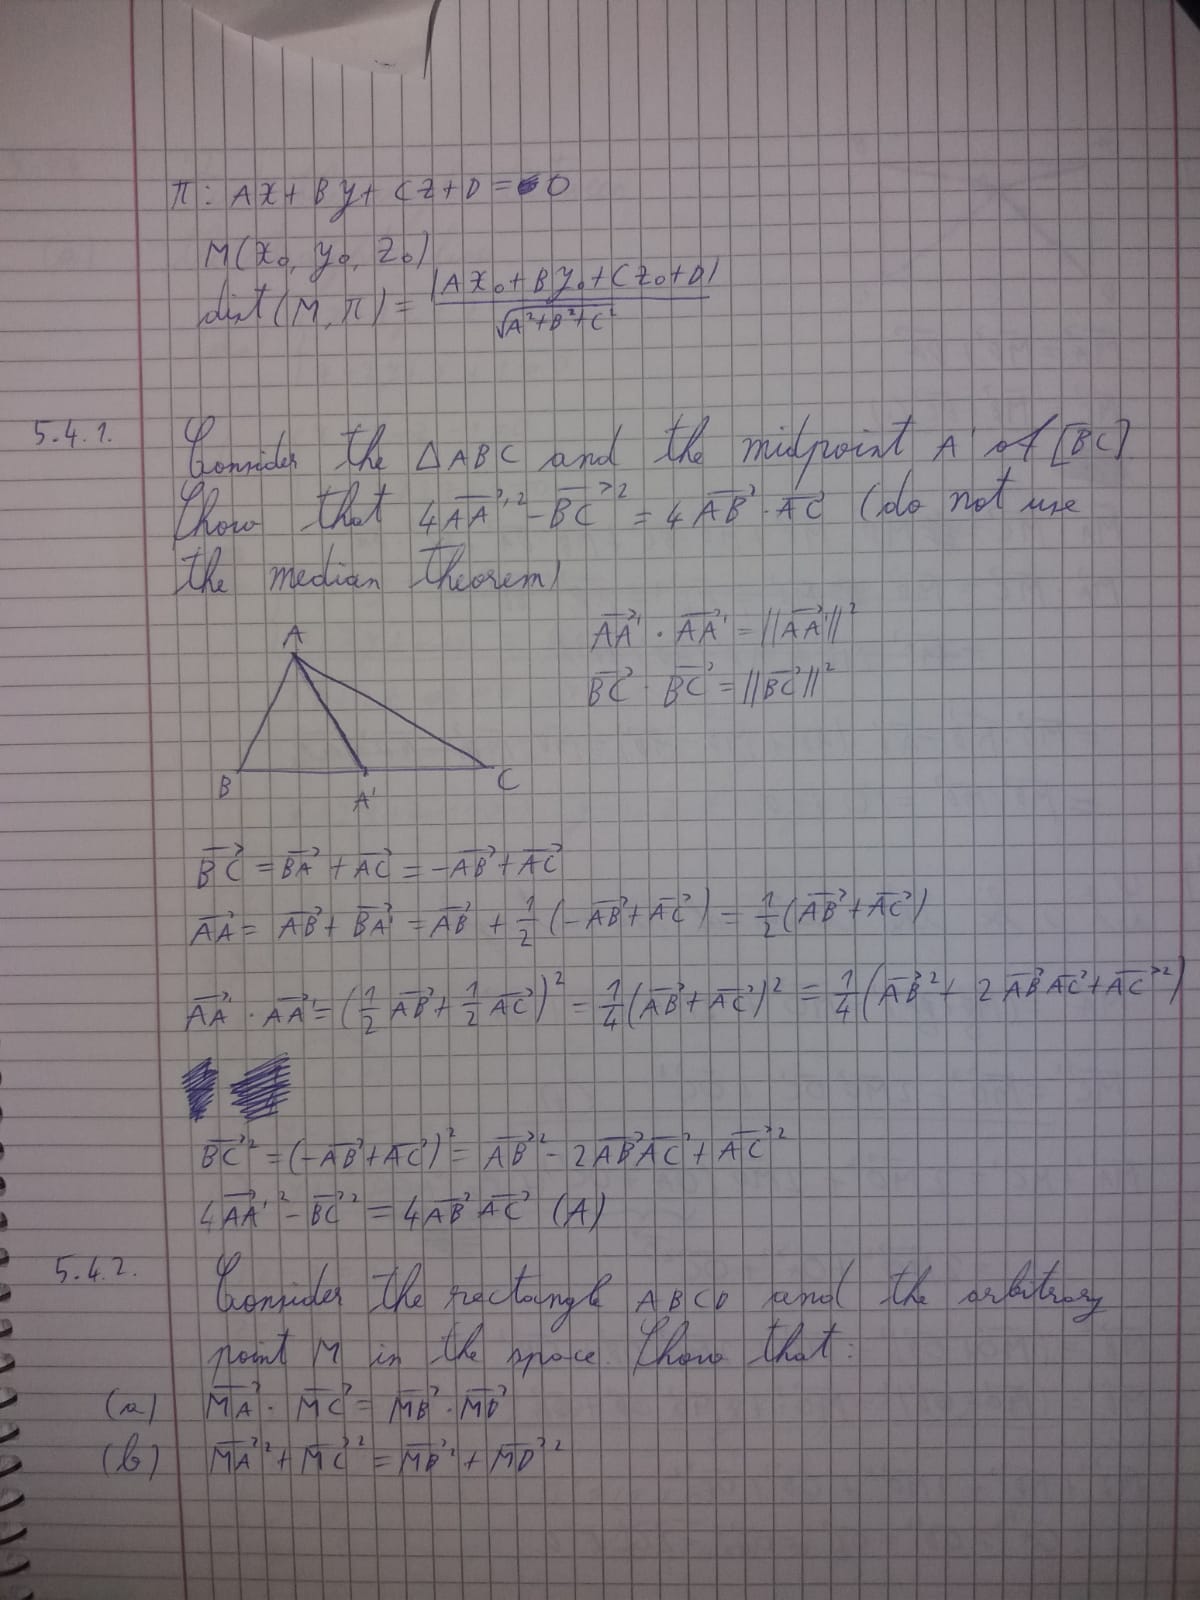 π: Ax + By + Cz + D = 0
M(x₀, y₀, z₀)
dist(M, π) = |Ax₀ + By₀ + Cz₀ + D| / √(A² + B² + C²)
5.4.1. Consider the △ABC and the midpoint A' of [BC]
Show that 4AA'⃗² - BC⃗² = 4AB⃗ · AC⃗ (do not use
the median theorem)
AA'⃗ · AA'⃗ = ||AA'⃗||²
BC⃗ · BC⃗ = ||BC⃗||²
A
B A' C
BC⃗ = BA⃗ + AC⃗ = -AB⃗ + AC⃗
AA⃗ = AB⃗ + BA'⃗ = AB⃗ + 1/2 (-AB⃗ + AC⃗) = 1/2 (AB⃗ + AC⃗)
AA'⃗ · AA'⃗ = (1/2 AB⃗ + 1/2 AC⃗)² = 1/4 (AB⃗ + AC⃗)² = 1/4 (AB⃗² + 2AB⃗ AC⃗ + AC⃗²)
BC⃗² = (-AB⃗ + AC⃗)² = AB⃗² - 2AB⃗ AC⃗ + AC⃗²
4AA'⃗² - BC⃗² = 4AB⃗ AC⃗ (A)
5.4.2. Consider the rectangle ABCD and the arbitrary
point M in the space. Show that:
(a) MA⃗ · MC⃗ = MB⃗ · MD⃗
(b) MA⃗² + MC⃗² = MB⃗² + MD⃗²